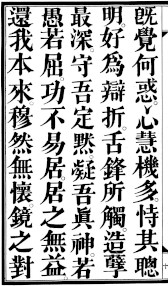 旣覺何惑心慧機多恃其聰
明好爲辯折舌鋒所觸造孽
最深守吾定黙凝吾眞神若
愚若屈功不易居居之無益
還我本來穆然無懷鏡之對